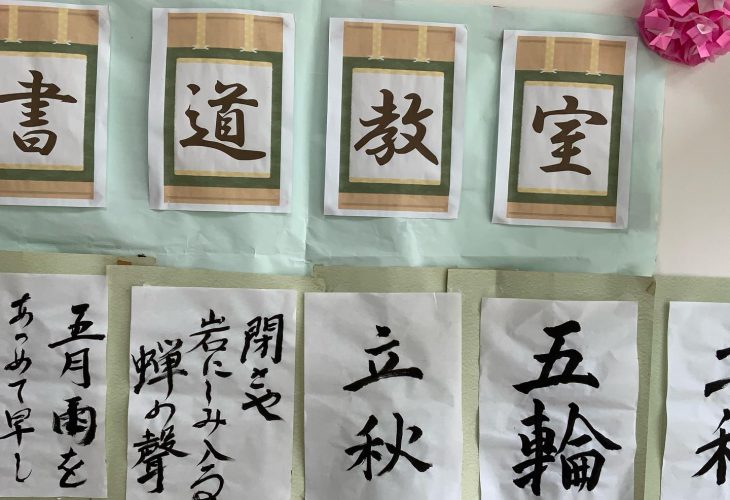 書道教室
五月雨を
あつめて早し
閑さや
岩にしみ入る
蝉の聲
立秋
五輪